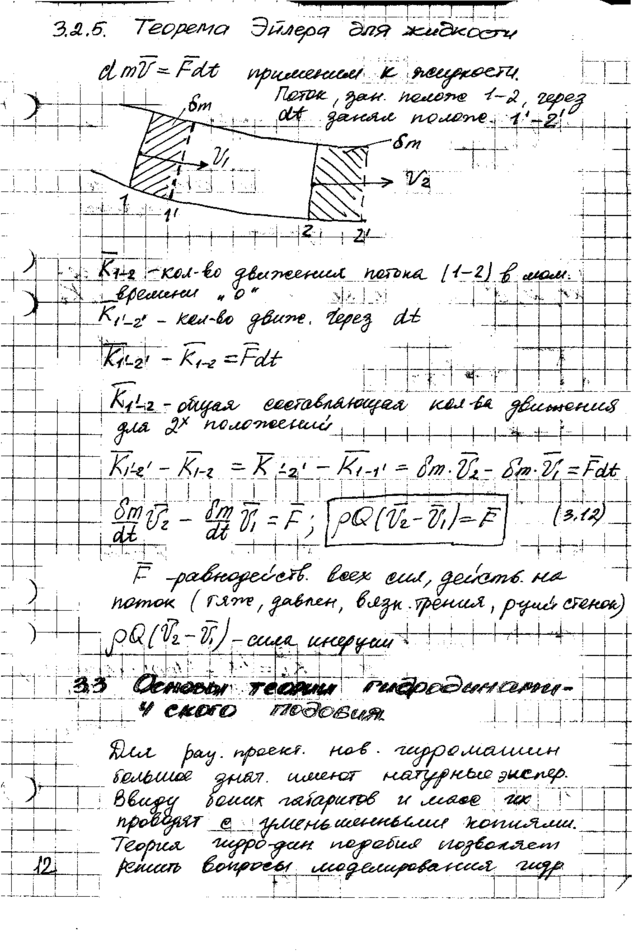 3.2.5. Теорема Эйлера для жидкости
d mV̅ = F̅dt применим к жидкости.
Поток, зан. полож 1-2, через
dt занял полож. 1'-2'
δm
δm
V̅1
V̅2
1
1'
2
2'
K̅1-2 - кол-во движения потока (1-2) в мом.
времени „0"
K̅1'-2' - кол-во движ. через dt
K̅1'-2' - K̅1-2 = F̅dt
K̅1'-2 - общая составляющая кол-ва движения
для 2х положений
K̅1'-2' - K̅1-2 = K̅2-2' - K̅1-1' = δm·V̅2 - δm·V̅1 = F̅dt
δm/dt V̅2 - δm/dt V̅1 = F̅; ρQ(V̅2-V̅1)=F̅ (3.12)
F̅ - равнодейств. всех сил, действ. на
поток (тяж, давлен, вязк. трения, стенок)
ρQ(V̅2-V̅1) - сила инерции
3.3 Основы теории гидродинами-
ческого подобия.
Для рац. проект. нов. гидромашин
большое знач. имеют натурные экспер.
Ввиду больших габаритов и масс их
проводят с уменьшенными копиями.
Теория гидро-дин подобия позволяет
решить вопросы моделирования гидр
12